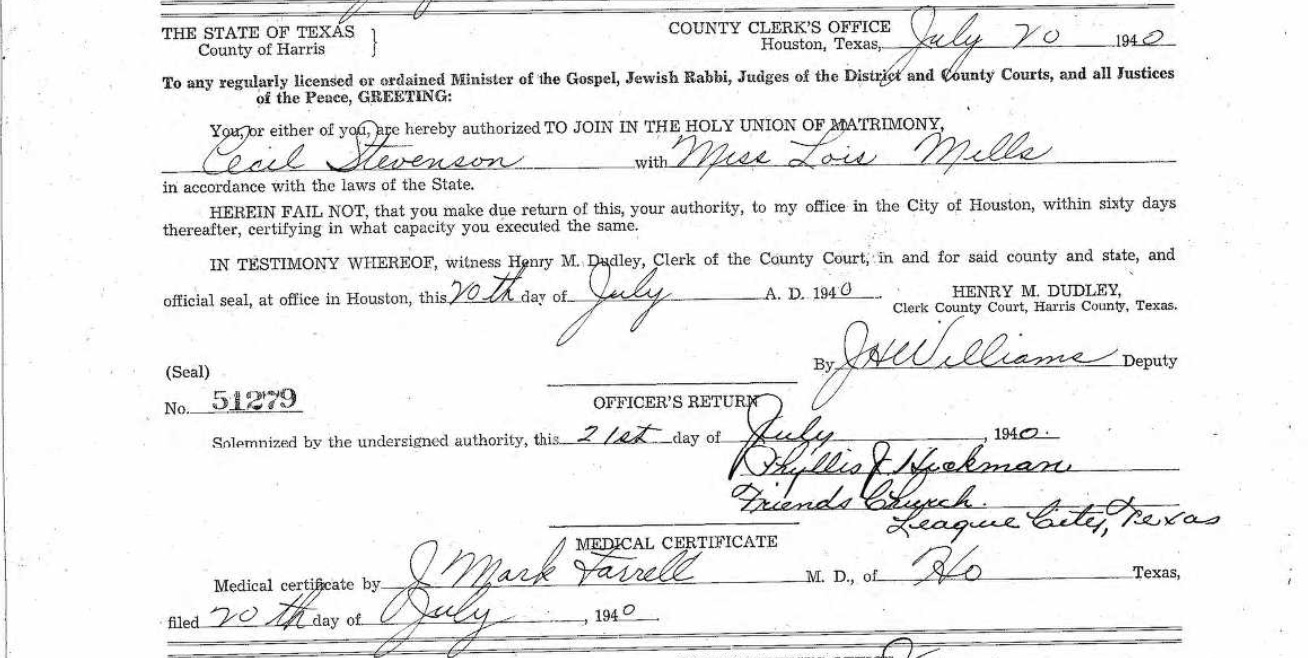 THE STATE OF TEXAS
County of Harris
COUNTY CLERK'S OFFICE
Houston, Texas, July 20 1940
To any regularly licensed or ordained Minister of the Gospel, Jewish Rabbi, Judges of the District and County Courts, and all Justices
of the Peace, GREETING:
You, or either of you, are hereby authorized TO JOIN IN THE HOLY UNION OF MATRIMONY,
Cecil Stevenson with Miss Lois Mills
in accordance with the laws of the State.
HEREIN FAIL NOT, that you make due return of this, your authority, to my office in the City of Houston, within sixty days
thereafter, certifying in what capacity you executed the same.
IN TESTIMONY WHEREOF, witness Henry M. Dudley, Clerk of the County Court, in and for said county and state, and
official seal, at office in Houston, this 20th day of July A. D. 1940
HENRY M. DUDLEY,
Clerk County Court, Harris County, Texas.
By J H Williams Deputy
(Seal)
No. 51279
OFFICER'S RETURN
Solemnized by the undersigned authority, this 21st day of July, 1940.
Phyllis J. Hickman
Friends Church.
League City, Texas
MEDICAL CERTIFICATE
Medical certificate by J Mark Farrell M. D., of Ho Texas,
filed 20th day of July, 1940.